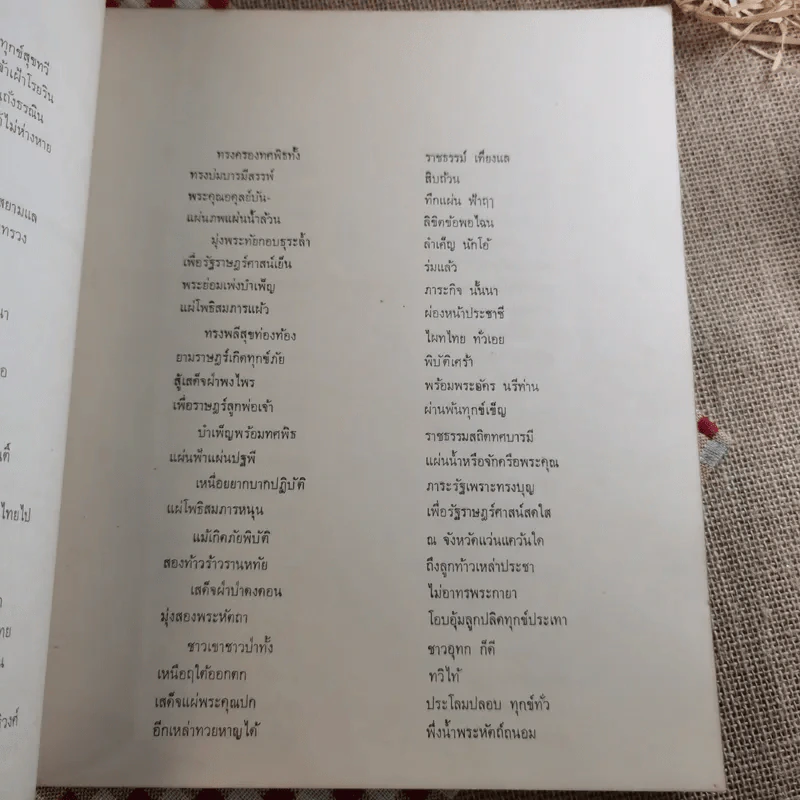 ทุกข์สุขทวี
ไม่ห่างหาย
สยามแล
ไทยไป
ทรงครองทศพิธทั้ง ราชธรรม์ เที่ยงแล
ทรงบ่มบารมีสรรพ์ สิบถ้วน
พระคุณอดุลย์บัน- ทึกแผ่น ฟ้าฤๅ
แผ่นภพแผ่นน้ำล้วน ลิขิตข้อพอไฉน
มุ่งพระทัยกอบธุระล้ำ ลำเค็ญ นักโอ้
เพื่อรัฐราษฎร์ศาสน์เย็น ร่มแล้ว
พระย่อมเพ่งบำเพ็ญ ภาระกิจ นั้นนา
แผ่โพธิสมภารแผ้ว ผ่องหน้าประชาชี
ทรงพลีสุขท่องท้อง ไผทไทย ทั่วเอย
ยามราษฎร์เกิดทุกข์ภัย พิบัติเศร้า
สู้เสด็จฝ่าพงไพร พร้อมพระอัคร นรีท่าน
เพื่อราษฎร์ลูกพ่อเจ้า ผ่านพ้นทุกข์เข็ญ
บำเพ็ญพร้อมทศพิธ ราชธรรมสถิตทศบารมี
แผ่นฟ้าแผ่นปฐพี แผ่นน้ำหรือจักครือพระคุณ
เหนื่อยยากบากปฏิบัติ ภาระรัฐเพราะทรงบุญ
แผ่โพธิสมภารหนุน เพื่อรัฐราษฎร์ศาสน์สดใส
แม้เกิดภัยพิบัติ ณ จังหวัดแว่นแคว้นใด
สองท้าวร้าวรานหทัย ถึงลูกท้าวเหล่าประชา
เสด็จฝ่าป่าดงดอน ไม่อาทรพระกายา
มุ่งสองพระหัตถา โอบอุ้มลูกปลิดทุกข์ประเทา
ชาวเขาชาวป่าทั้ง ชาวอุทก ก็ดี
เหนือฤใต้ออกตก ทวิไท้
เสด็จแผ่พระคุณปก ประโลมปลอบ ทุกข์ทั่ว
อีกเหล่าทวยหาญได้ พึ่งน้ำพระหัตถ์ถนอม